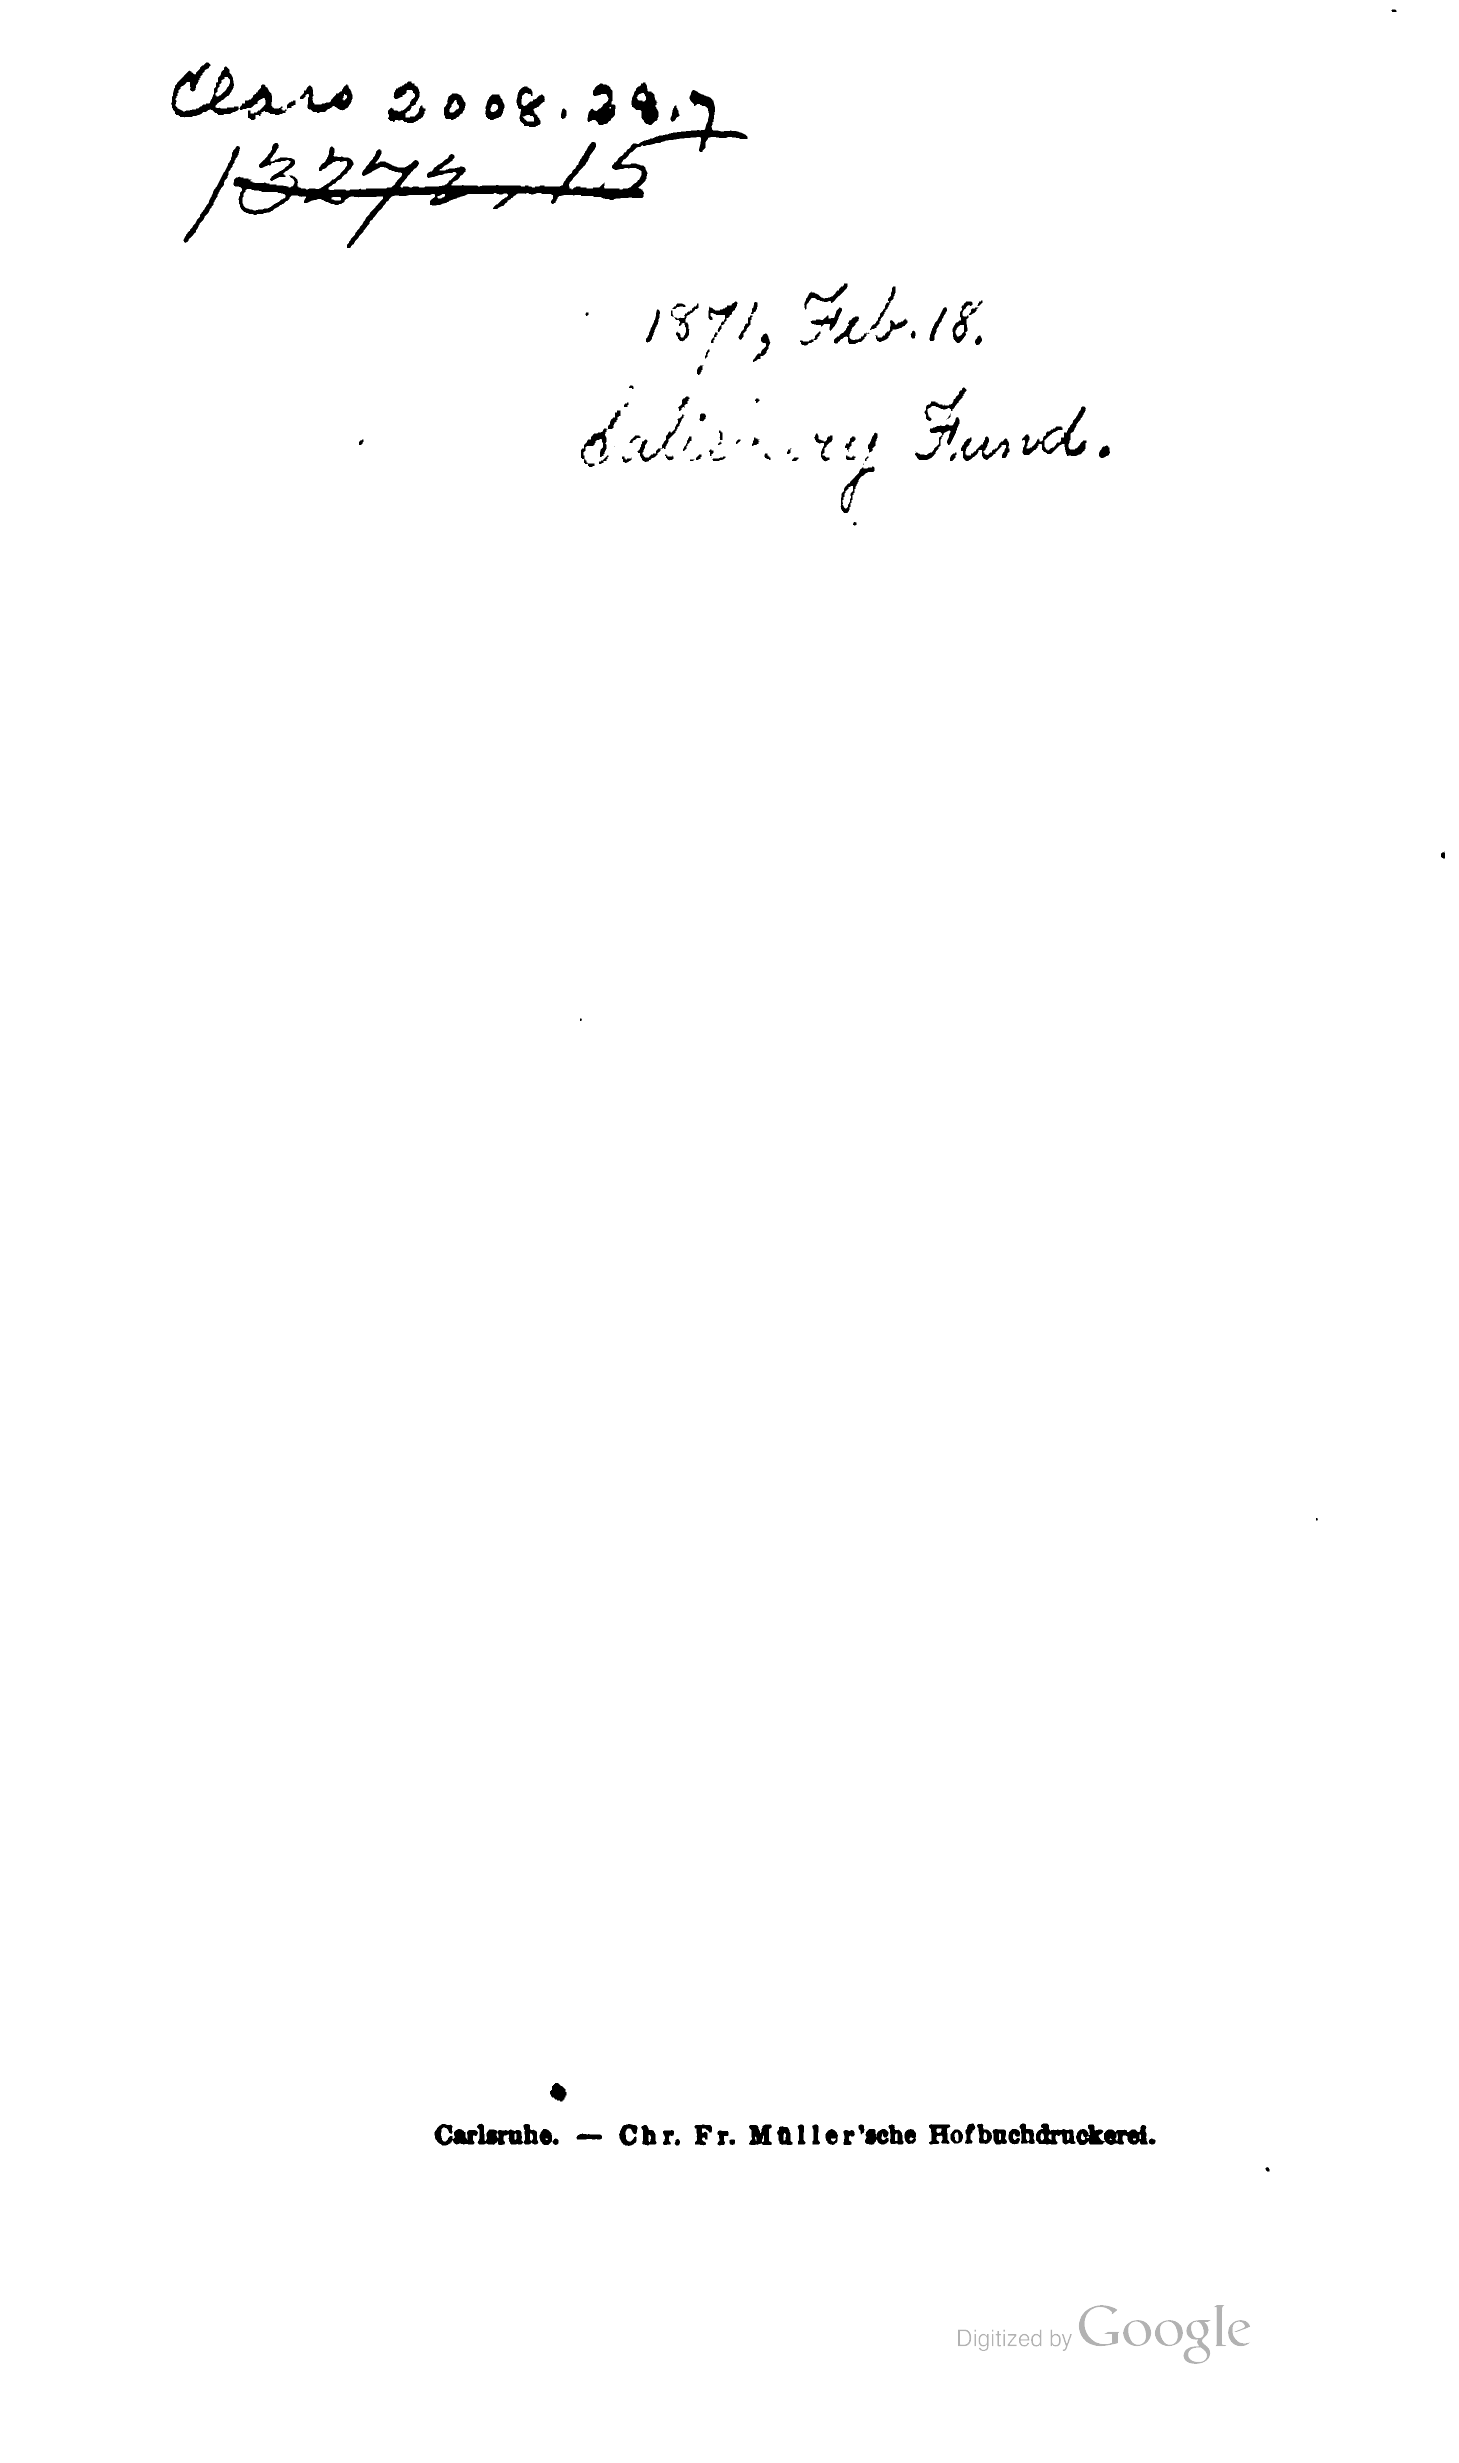 Class 2008.28.7
13273.15
1871, Feb. 18.
Salisbury Fund.
Carlsruhe. — Chr. Fr. Müller'sche Hofbuchdruckerei.
Digitized by Google